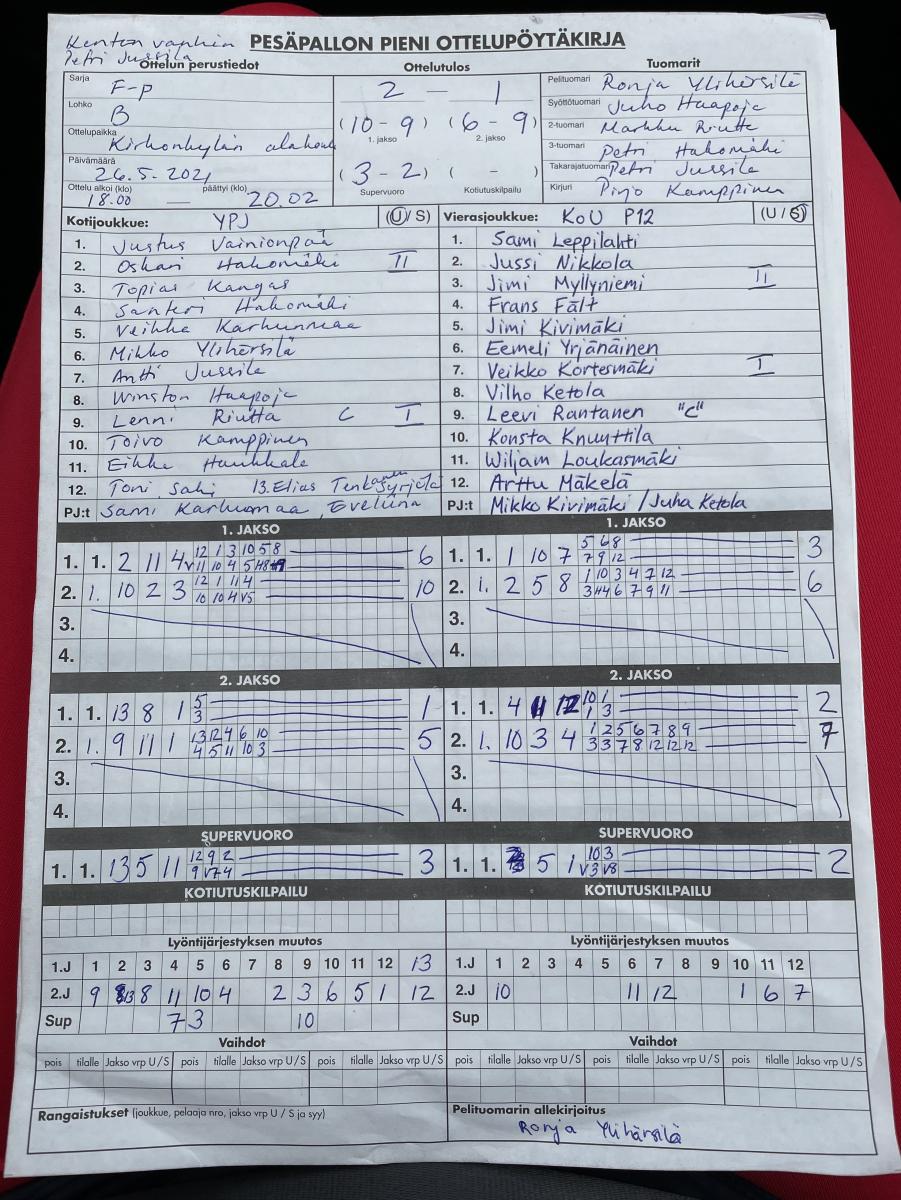 Kenton vanhin
Petri Jussila
PESÄPALLON PIENI OTTELUPÖYTÄKIRJA
Ottelun perustiedot Ottelutulos Tuomarit
Sarja F-p
Lohko B
Ottelupaikka Kirkonkylän
Päivämäärä 26.5.2021
Ottelu alkoi (klo) 18.00 — päättyi (klo) 20.02
2 — 1
(10 - 9) (6 - 9)
1. jakso 2. jakso
(3 - 2) ( - )
Supervuoro Kotiutuskilpailu
Pelituomari Ronja Ylihärsilä
Syöttötuomari Juho Haapoja
2-tuomari Markku Riutta
3-tuomari Petri Hakomäki
Takarajatuomari Petri Jussila
Kirjuri Pirjo Kamppinen
Kotijoukkue: YPJ (U/S)
1. Justus Vainionpää
2. Oskari Hakomäki II
3. Topias Kangas
4. Santeri Hakomäki
5. Veikka Karhunmaa
6. Mikko Ylihärsilä
7. Antti Jussila
8. Winston Haapoja
9. Lenni Riutta C I
10. Toivo Kamppinen
11. Eikka
12. Toni Sahi 13. Elias
PJ:t Sami Karhumaa, Eveliina Syrjälä
Vierasjoukkue: KoU P12 (U/S)
1. Sami Leppilahti
2. Jussi Nikkola
3. Jimi Myllyniemi II
4. Frans Fält
5. Jimi Kivimäki
6. Eemeli Yrjänäinen
7. Veikko Kortesmäki I
8. Vilho Ketola
9. Leevi Rantanen "C"
10. Konsta Knuuttila
11. Wiljam Loukasmäki
12. Arttu Mäkelä
PJ:t Mikko Kivimäki / Juha Ketola
1. JAKSO
1. 1. 2 11 4 12 1 3 10 5 8 6
V11 10 4 5
2. 1. 10 2 3 12 1 11 4 10
10 10 4 V5
3.
4.
1. JAKSO
1. 1. 1 10 7 5 6 8 3
7 9 12
2. 1. 2 5 8 1 10 3 4 7 12 6
6 7 9 11
3.
4.
2. JAKSO
1. 1. 13 8 1 5 1
3
2. 1. 9 11 1 13 12 4 6 10 5
4 5 11 10 3
3.
4.
2. JAKSO
1. 1. 4 12 10 1 2
1 3
2. 1. 10 3 4 1 2 5 6 7 8 9 7
3 3 7 8 12 12 12
3.
4.
SUPERVUORO
1. 1. 13 5 11 12 9 2 3
9 V7 4
SUPERVUORO
1. 1. 5 1 10 3 2
V3 V8
KOTIUTUSKILPAILU
KOTIUTUSKILPAILU
Lyöntijärjestyksen muutos
1.J 1 2 3 4 5 6 7 8 9 10 11 12 13
2.J 9 13 8 11 10 4 2 3 6 5 1 12
Sup 7 3 10
Lyöntijärjestyksen muutos
1.J 1 2 3 4 5 6 7 8 9 10 11 12
2.J 10 11 12 1 6 7
Sup
Vaihdot
pois tilalle Jakso vrp U/S pois tilalle Jakso vrp U/S pois tilalle Jakso vrp U/S
Vaihdot
pois tilalle Jakso vrp U/S pois tilalle Jakso vrp U/S pois tilalle Jakso vrp U/S
Rangaistukset (joukkue, pelaaja nro, jakso vrp U / S ja syy)
Pelituomarin allekirjoitus
Ronja Ylihärsilä